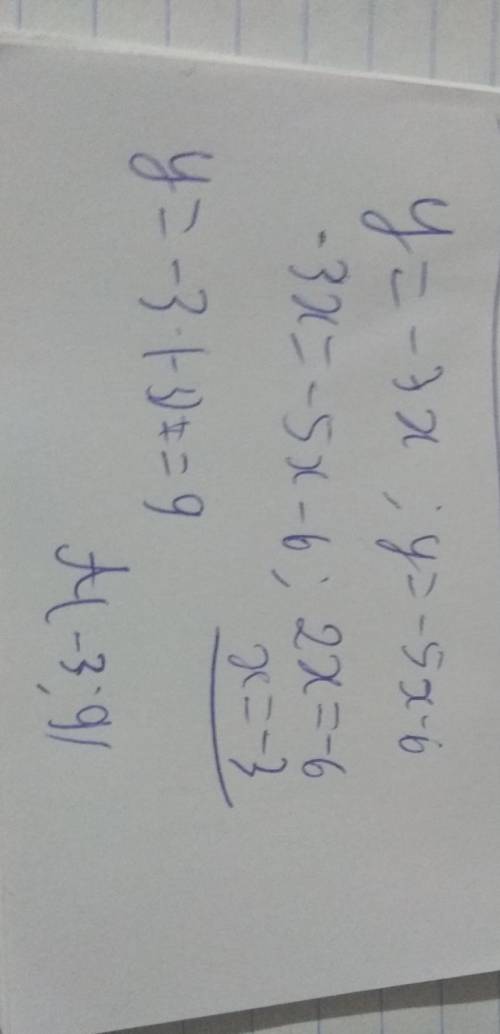 y = -3x ; y = -5x-6
-3x = -5x-6 ; 2x = -6
x = -3
y = -3·(-3) = 9
A(-3;9)